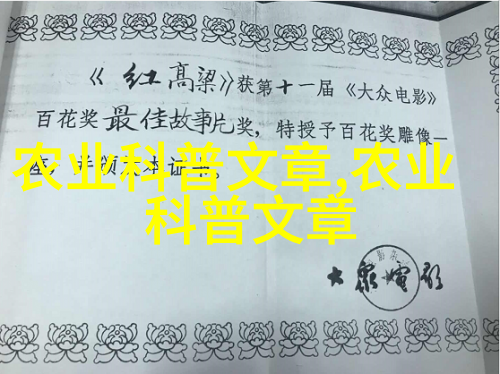 《红高粱》获第十一届《大众电影》
百花奖最佳故事片奖,特授予百花奖雕像一
座,并颁
证书。
农业科普文章,农业
科普文章
大众电影